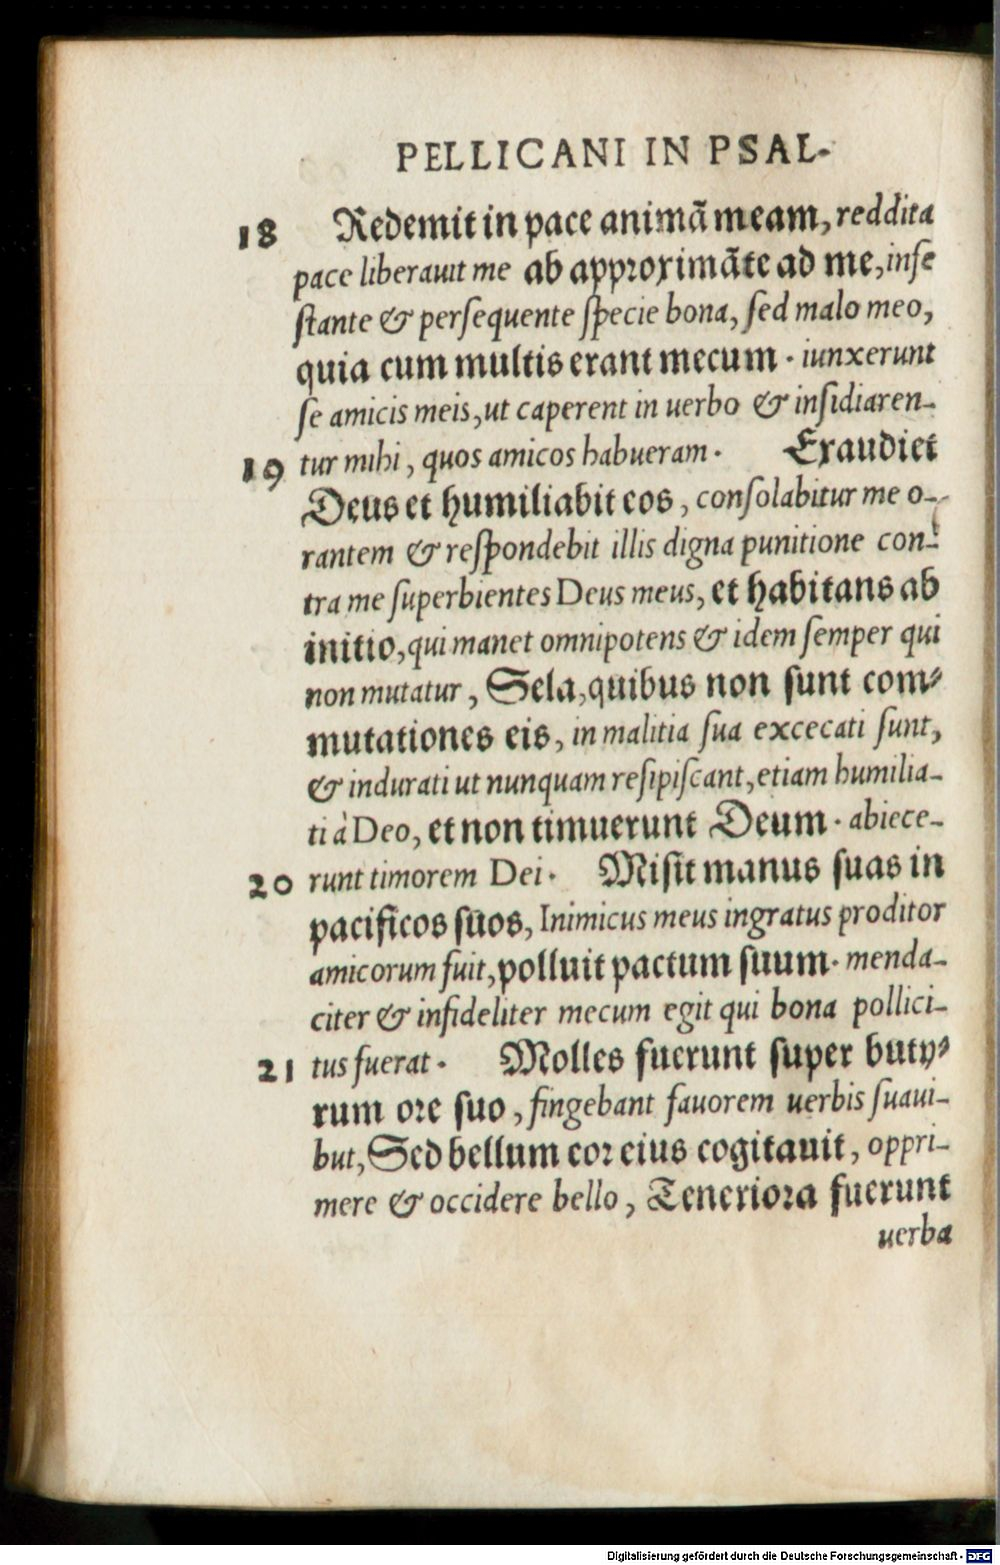 PELLICANI IN PSAL-
18 Redemit in pace animā meam, reddita
pace liberauit me ab approximāte ad me, infe
stante & persequente specie bona, sed malo meo,
quia cum multis erant mecum. iunxerunt
se amicis meis, ut caperent in uerbo & insidiaren-
19 tur mihi, quos amicos habueram. Exaudiet
Deus et humiliabit eos, consolabitur me o-
rantem & respondebit illis digna punitione con-
tra me superbientes Deus meus, et habitans ab
initio, qui manet omnipotens & idem semper qui
non mutatur, Sela, quibus non sunt com-
mutationes eis, in malitia sua excecati sunt,
& indurati ut nunquam resipiscant, etiam humilia-
ti à Deo, et non timuerunt Deum. abiece-
20 runt timorem Dei. Misit manus suas in
pacificos suos, Inimicus meus ingratus proditor
amicorum fuit, polluit pactum suum. menda-
citer & infideliter mecum egit qui bona pollici-
21 tus fuerat. Molles fuerunt super buty-
rum ore suo, fingebant fauorem uerbis suaui-
but, Sed bellum cor eius cogitauit, oppri-
mere & occidere bello, Teneriora fuerunt
uerba
Digitalisierung gefördert durch die Deutsche Forschungsgemeinschaft - DFG